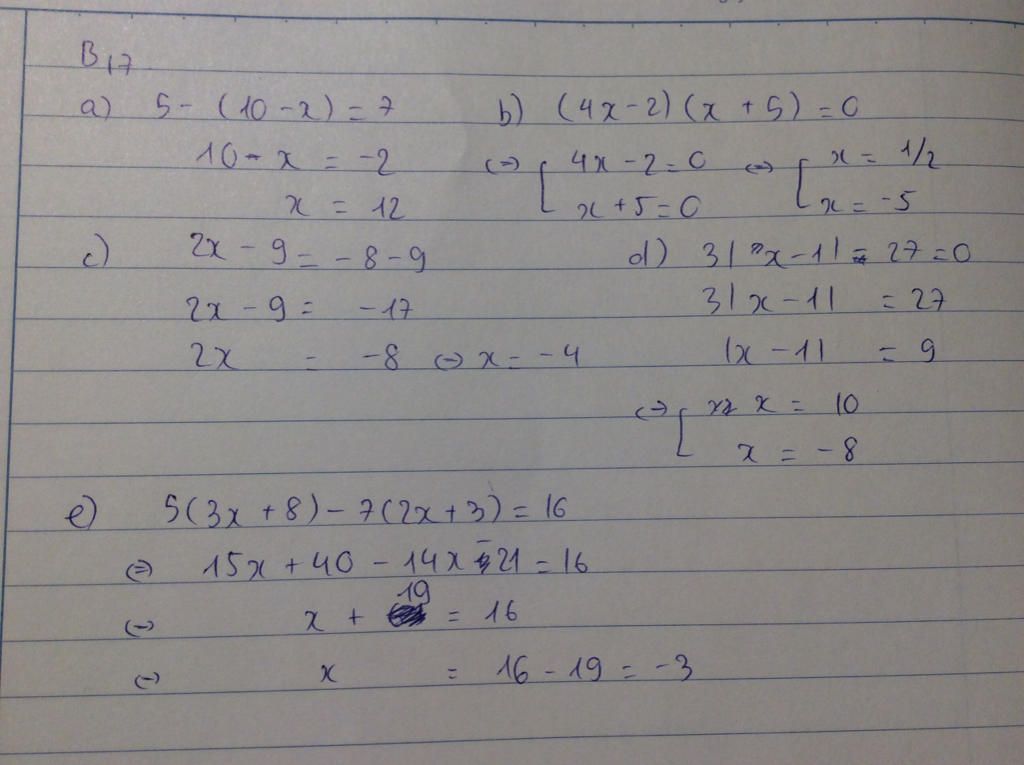 B17
a) 5 - (10 - x) = 7
10 - x = -2
x = 12
b) (4x - 2)(x + 5) = 0
<=> [ 4x - 2 = 0 <=> [ x = 1/2
x + 5 = 0 x = -5
c) 2x - 9 = -8 - 9
2x - 9 = -17
2x = -8 <=> x = -4
d) 3|x - 1| - 27 = 0
3|x - 1| = 27
|x - 1| = 9
<=> [ x = 10
x = -8
e) 5(3x + 8) - 7(2x + 3) = 16
<=> 15x + 40 - 14x - 21 = 16
<=> x + 19 = 16
<=> x = 16 - 19 = -3